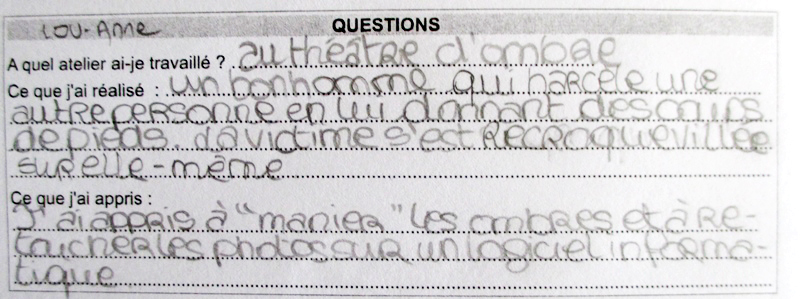 LOU-Anne QUESTIONS
A quel atelier ai-je travaillé ? au théâtre d'ombre
Ce que j'ai réalisé : un bonhomme qui harcèle une
autre personne en lui donnant des coups
de pieds. La victime s'est recroquevillée
sur elle-même
Ce que j'ai appris :
J'ai appris à "manier" les ombres et à re-
toucher les photos sur un logiciel informa-
tique